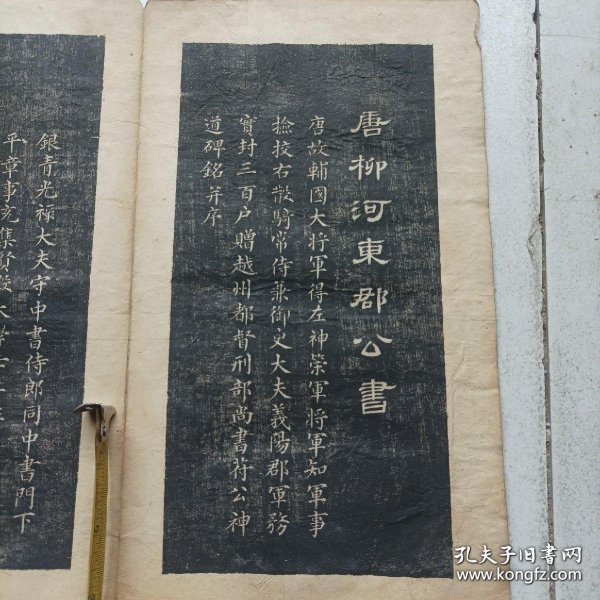 唐柳河東郡公書
唐故輔國大將軍得左神策軍將軍知軍事
撿挍右散騎常侍兼御史大夫義陽郡軍務
實封三百户贈越州都督刑部尚書苻公神
道碑銘并序
銀青光祿大夫守中書侍郎同中書門下
平章事充集賢殿大學士
孔夫子旧书网
www.kongfz.com